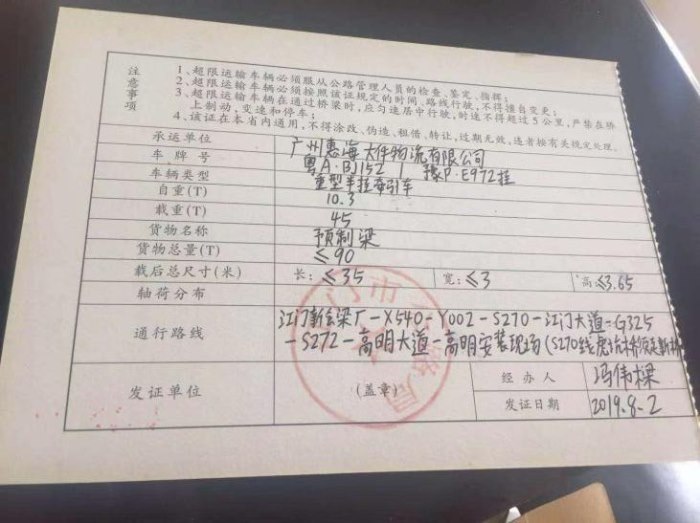 注意事项
1、超限运输车辆必须服从公路管理人员的检查、鉴定、指挥;
2、超限运输车辆必须按照该证规定的时间、路线行驶,不得擅自变更;
3、超限运输车辆在通过桥梁时,应匀速居中行驶,时速不得超过5公里,严禁在桥
上制动、变速和停车;
4、该证在本省内通用,不得涂改、伪造、租借、转让,过期无效,违者按有关规定处理。
承运单位 广州惠海大件物流有限公司
车牌号 粤A·BJ152 | 豫P·E972挂
车辆类型 重型半挂牵引车
自重(T) 10.3
载重(T) 45
货物名称 预制梁
货物总量(T) ≤90
载后总尺寸(米) 长:≤35 宽:≤3 高:≤3.65
轴荷分布
通行路线 江门新会梁厂-X540-Y002-S270-江门大道-G325
-S272-高明大道-高明安装现场(S270线虎坑桥须走新桥
发证单位 (盖章) 经办人 冯伟樑
发证日期 2019.8.2
门市
路局